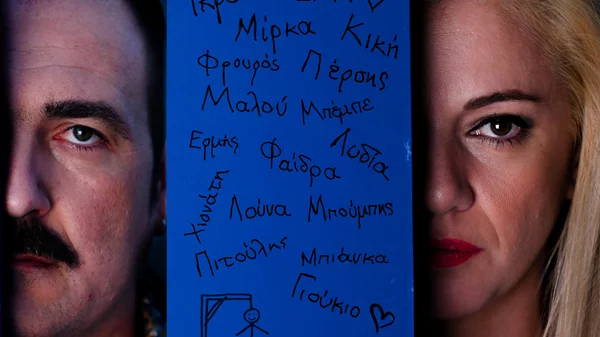 Μίρκα Κική
Φρουρός Πέρσης
Μαλού Μπέμπε
Ερμής Φαίδρα Λυδία
Χιονάτη
Λούνα Μπούμπης
Πιτούλης Μπιάνκα
Γιούκιο